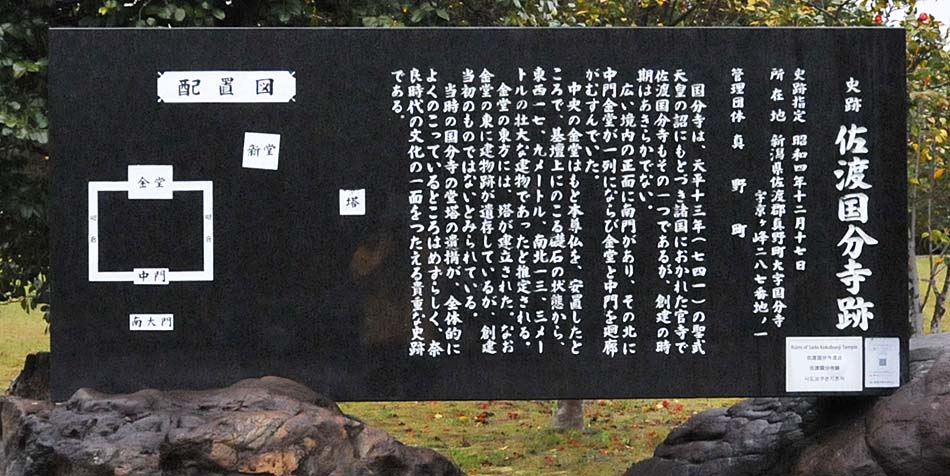 史跡 佐渡国分寺跡
史跡指定 昭和四年十二月十七日
所在地 新潟県佐渡郡真野町大字国分寺
字京ヶ峰二八七番地ノ一
管理団体 真野町
国分寺は、天平十三年(七四一)の聖武
天皇の詔にもとづき諸国におかれた官寺で
佐渡国分寺もその一つであるが、創建の時
期はあきらかでない。
広い境内の正面に南門があり、その北に
中門金堂が一列にならび金堂と中門を廻廊
がむすんでいた。
中央の金堂はもと本尊仏を、安置したと
ころで、基壇上にのこる礎石の状態から、
東西一七、九メートル、南北一三、三メー
トルの壮大な建物であったと推定される。
金堂の東方には、塔が建立された。なお
金堂の東に建物跡が遺存しているが、創建
当初のものではないとみられている。
当時の国分寺の堂塔の遺構が、全体的に
よくのこっているところはめずらしく、奈
良時代の文化の一面をつたえる貴重な史跡
である。
配置図
新堂
金堂
塔
回廊
回廊
中門
南大門
Ruins of Sado Kokubunji Temple
佐渡国分寺遗址
佐渡國分寺跡
사도 고쿠분지 흔적